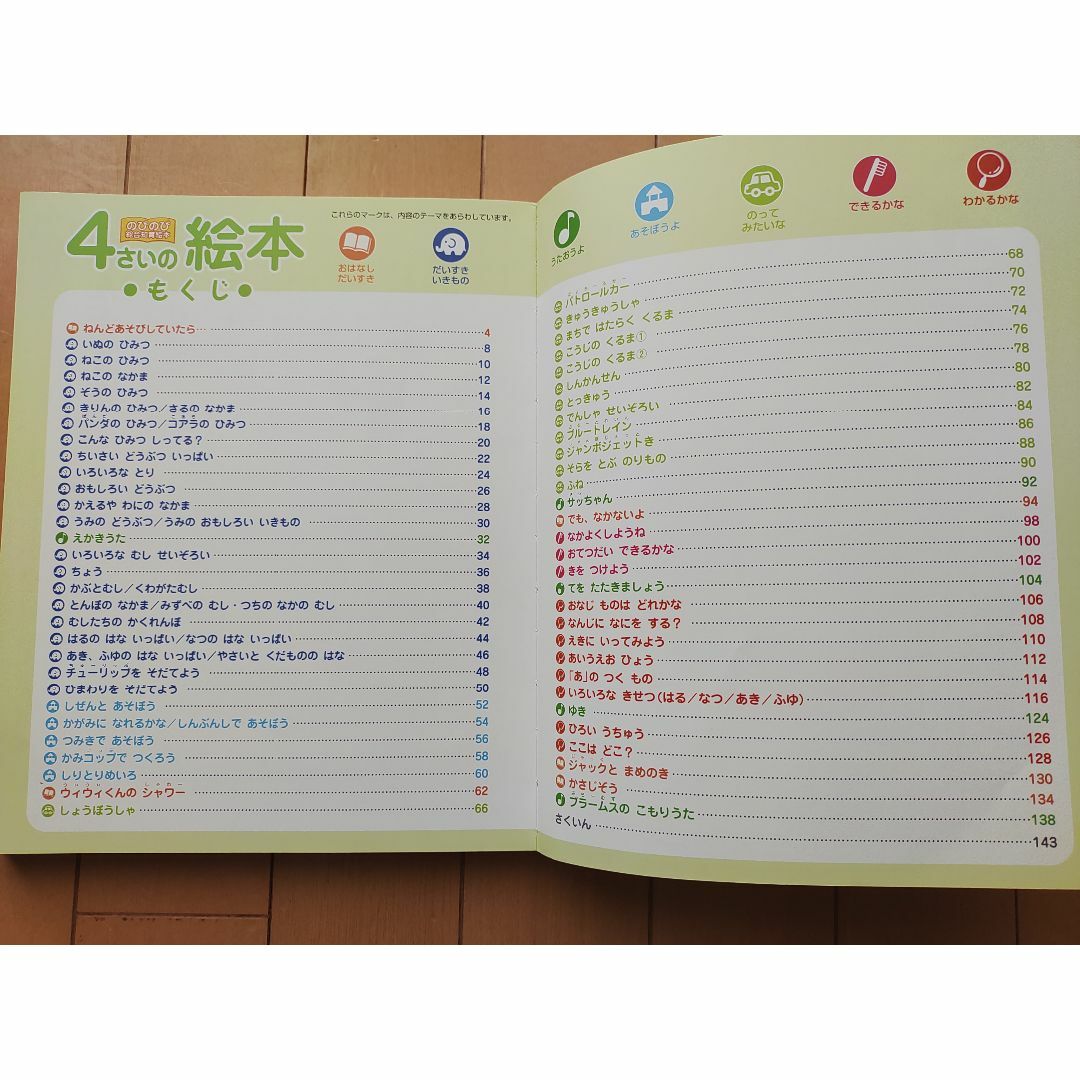 のびのび
総合知育絵本
4さいの 絵本
●もくじ●
これらのマークは、内容のテーマをあらわしています。
おはなし
だいすき
だいすき
いきもの
ねんどあそびしていたら 4
いぬの ひみつ 8
ねこの ひみつ 10
ねこの なかま 12
ぞうの ひみつ 14
きりんの ひみつ/さるの なかま 16
パンダの ひみつ/コアラの ひみつ 18
こんな ひみつ しってる? 20
ちいさい どうぶつ いっぱい 22
いろいろな とり 24
おもしろい どうぶつ 26
かえるや わにの なかま 28
うみの どうぶつ/うみの おもしろい いきもの 30
えかきうた 32
いろいろな むし せいぞろい 34
ちょう 36
かぶとむし/くわがたむし 38
とんぼの なかま/みずべの むし・つちの なかの むし 40
むしたちの かくれんぼ 42
はるの はな いっぱい/なつの はな いっぱい 44
あき、ふゆの はな いっぱい/やさいと くだものの はな 46
チューリップを そだてよう 48
ひまわりを そだてよう 50
しぜんと あそぼう 52
かがみに なれるかな/しんぶんしで あそぼう 54
つみきで あそぼう 56
かみコップで つくろう 58
しりとりめいろ 60
ウィウィくんの シャワー 62
しょうぼうしゃ 66
うたおうよ
あそぼうよ
のって
みたいな
できるかな
わかるかな
パトロールカー 68
きゅうきゅうしゃ 70
まちで はたらく くるま 72
こうじの くるま① 74
こうじの くるま② 76
しんかんせん 78
とっきゅう 80
でんしゃ せいぞろい 82
ブルートレイン 84
ジャンボジェットき 86
そらを とぶ のりもの 88
ふね 90
サッちゃん 92
でも、なかないよ 94
なかよくしようね 98
おてつだい できるかな 100
きを つけよう 102
てを たたきましょう 104
おなじ ものは どれかな 106
なんじに なにを する? 108
えきに いってみよう 110
あいうえお ひょう 112
「あ」の つく もの 114
いろいろな きせつ(はる/なつ/あき/ふゆ) 116
ゆき 124
ひろい うちゅう 126
ここは どこ? 128
ジャックと まめのき 130
かさじぞう 134
ブラームスの こもりうた 138
さくいん 143